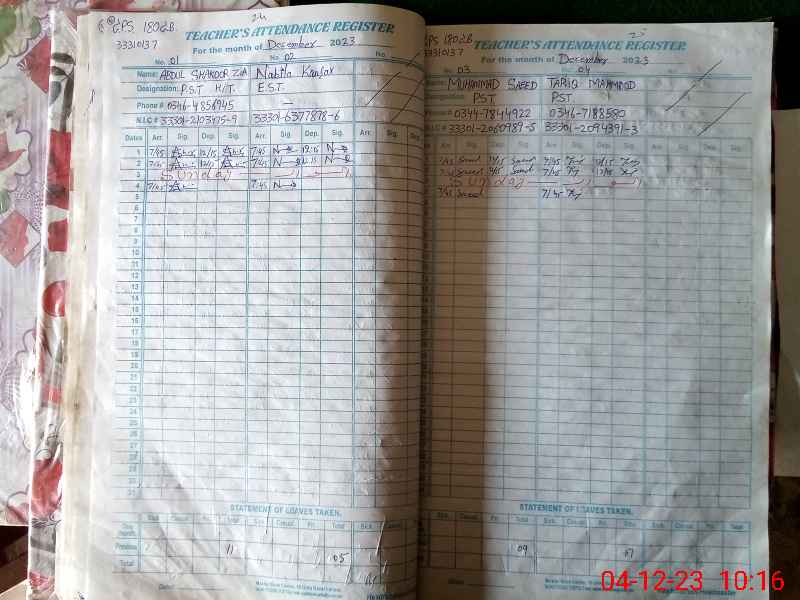 24
GPS 180GB
33310137
TEACHER'S ATTENDANCE REGISTER
For the month of December 2023
No. 01 No. 02 No.
Name: ABDUL SHAKOOR ZIA Nabila Kausar
Designation: P.S.T H/T. E.S.T.
Phone # 0346-4856945 —
N.I.C # 33301-2103475-9 33301-6377878-6
Dates Arr. Sig. Dep. Sig. Arr. Sig. Dep. Sig. Arr. Sig.
1 7/45 12/15 7:45 12:15
2 7/45 7/45 12:15
3 Sunday
4 7/45 7:45
5
6
7
8
9
10
11
12
13
14
15
16
17
18
19
20
21
22
23
24
25
26
27
28
29
30
31
STATEMENT OF LEAVES TAKEN.
Sick Casual Pri. Total Sick Casual Pri. Total Sick Casual
This month
Previous 11 05
Total
25
GPS 180GB
33310137
TEACHER'S ATTENDANCE REGISTER
For the month of December 2023
No. 03 04
MUHAMMAD SAEED TARIQ MAHMOOD
PST PST
0344-7844922 0346-7188580
33301-2060989-5 33301-2094391-3
Arr Sig. Dep Sig. Arr Sig. Dep. Sig. Arr. Sig.
7/45 Saeed Saeed 7/45 12/15
Saeed Saeed 7/45 12/15
Sunday
7/45 Saeed 7/45
STATEMENT OF LEAVES TAKEN.
Sick Casual Pri. Total Sick Casual Pri. Total Sick Casual Pri. Total
09 07
04-12-23 10:16